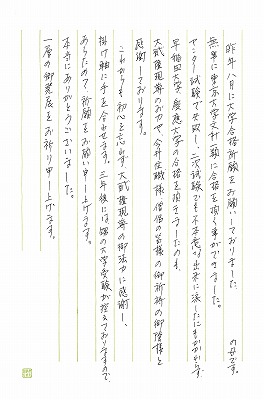 昨年八月に大学合格祈願をお願いしておりました、 の母です。
無事に東京大学文科一類に合格を頂く事ができました。
センター試験で失敗し、二次試験でも不本意な出来に終ったにもかかわらず、
早稲田大学、慶應大学の合格を頂きましたのも、
大武優現尊のお力や、今井住職様、僧侶の皆様の御祈祷の御陰様と
感謝しております。
これからも初心を忘れず、大武優現尊の御法力に感謝し、
掛け軸に手を合わせます。三年後には 大学受験が控えておりますので、
あらたので、祈願をお願い申し上げます。
本当にありがとうございました。
一層の御発展をお祈り申し上げます。